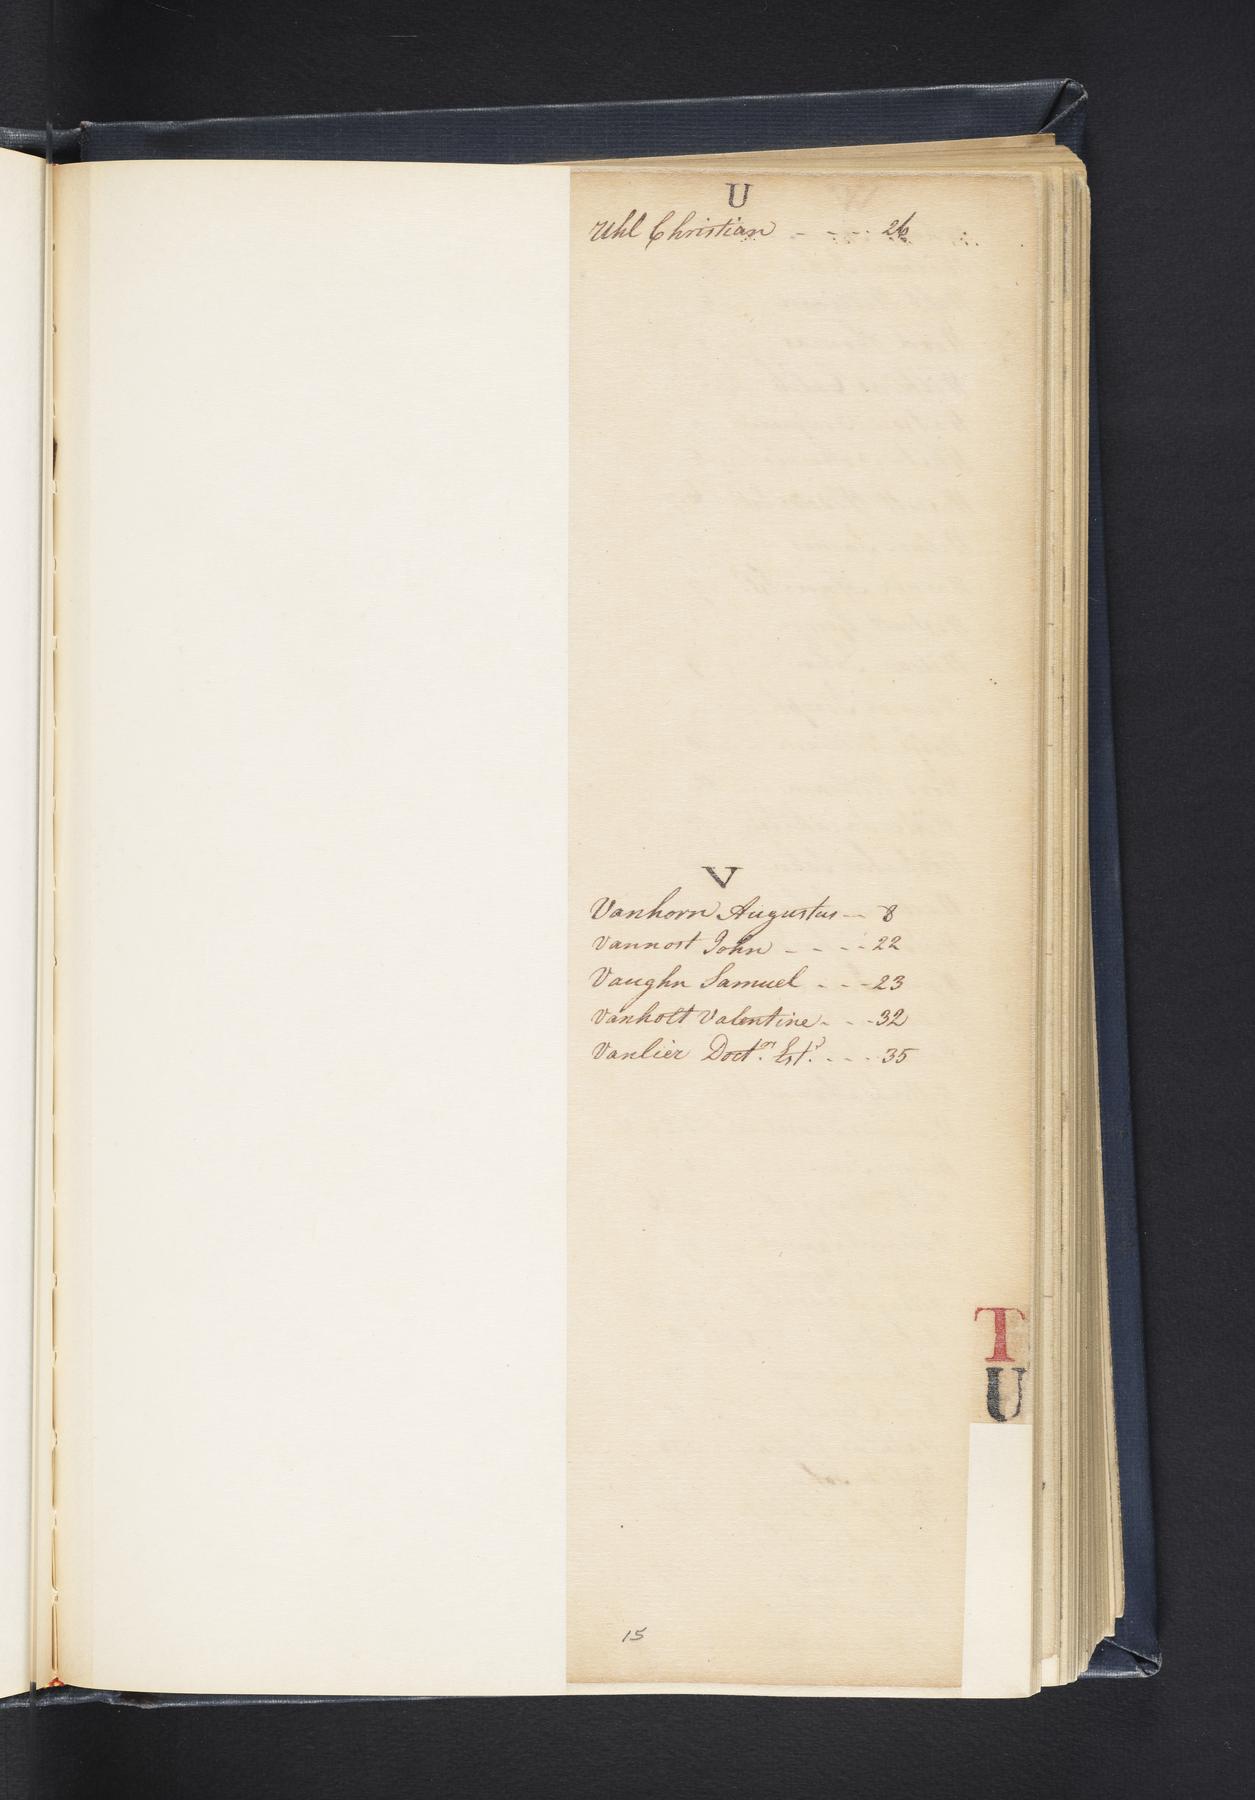 U
Uhl Christian - - - - 26
V
Vanhorn Augustus -- 8
Vannost John - - - - 22
Vaughn Samuel - - - 23
Vanholt Valentine - - - 32
Vanlier Doctor. Ests. - - - 35
T
U
15